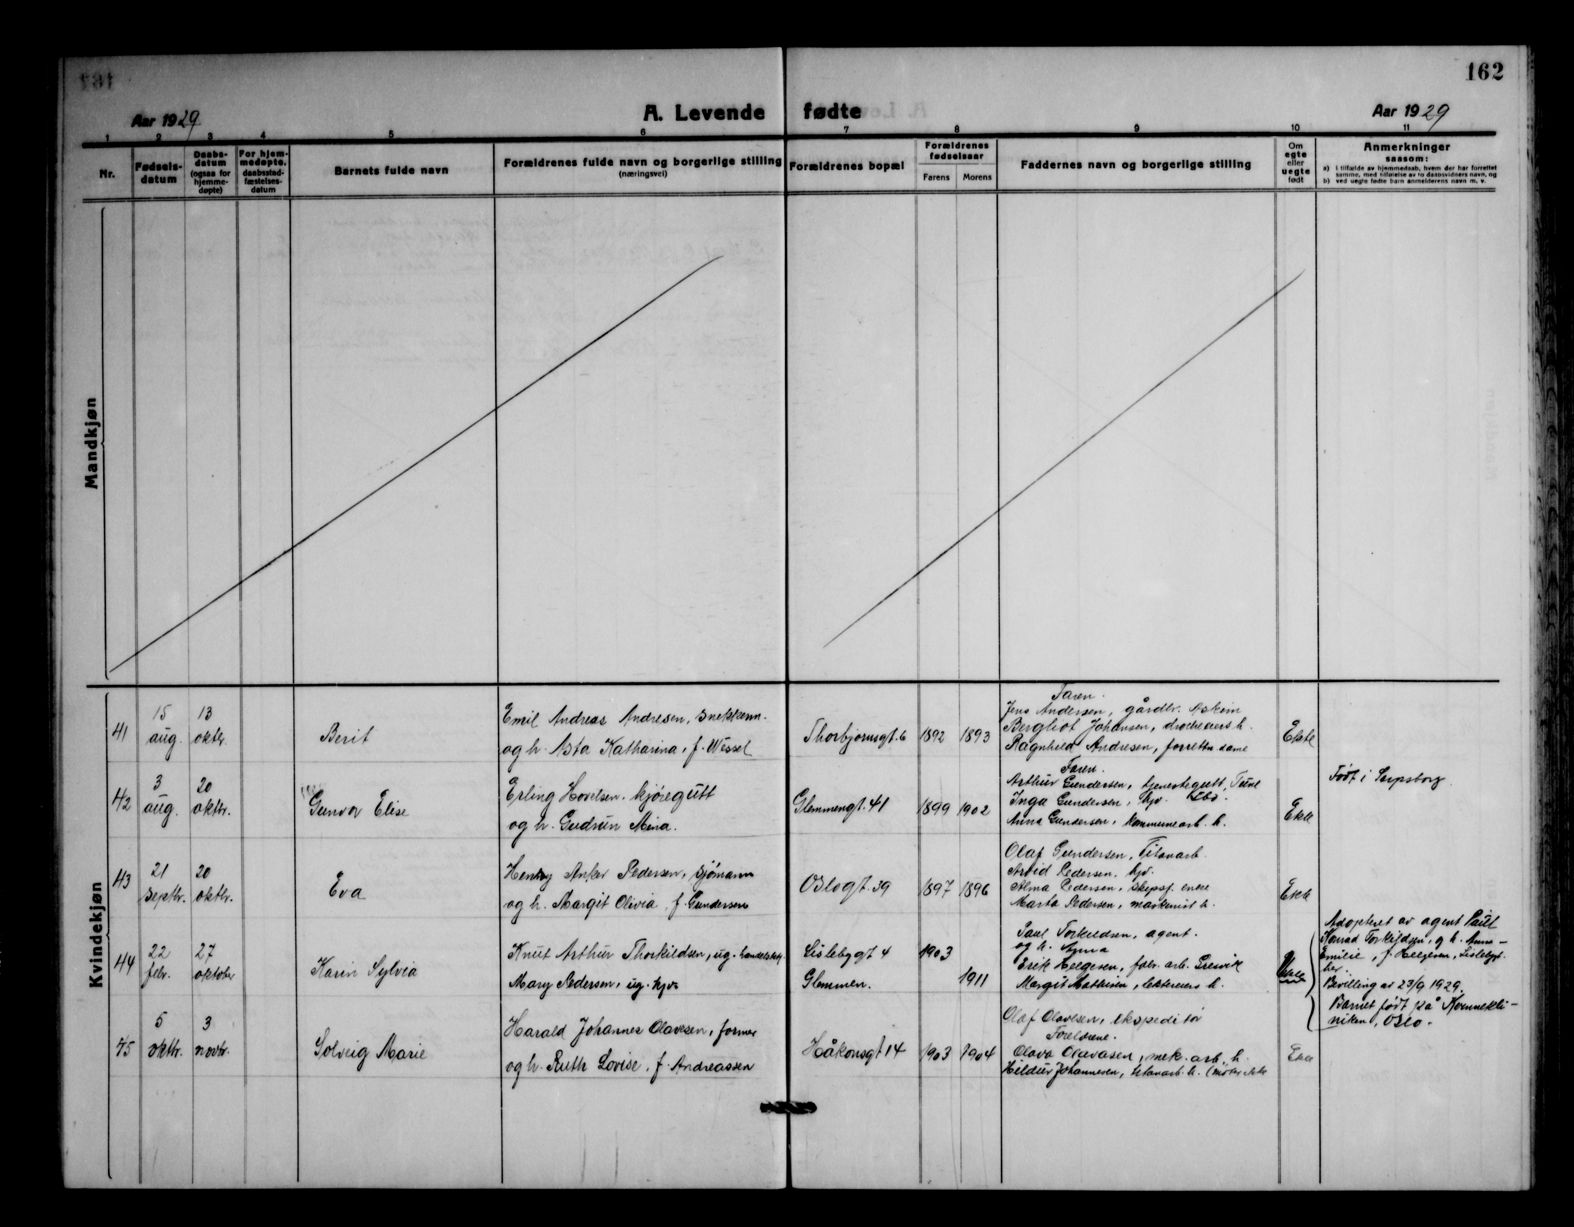 162
Aar 1929
A. Levende fødte
Aar 1929
1 2 3 4 5 6 7 8 9 10 11
Nr.
Fødsels-
datum
Daabs-
datum
(ogsaa for
hjemme-
døpte)
For hjem-
medøpte.
daabsstad-
fæstelses-
datum
Barnets fulde navn
Forældrenes fulde navn og borgerlige stilling
(næringsvei)
Forældrenes bopæl
Forældrenes
fødselsaar
Farens Morens
Faddernes navn og borgerlige stilling
Om
egte
eller
uegte
født
Anmerkninger
saasom:
a) i tilfælde av hjemmedaab, hvem der har forrettet
samme, med tilføielse av to daabsvidners navn, og
b) ved uegte fødte barn anmelderens navn m. v.
Mandkjøn
Kvindekjøn
41
15
aug.
13
oktbr.
Berit
Emil Andreas Andresen, snekkerm.
og h. Asta Katharina, f. Wessel
Thorbjørnsgt. 6
1892 1893
Faren.
Jens Andersen, gårdbr. Askim
Bergliot Johansen,
Ragnhild Andresen, forretn. dame
Ekte
42
3
aug.
20
oktbr.
Gunvor Elise
Erling Hovelsen, kjøregutt
og h. Gudrun Mina.
Glemmengt. 41
1899 1902
Faren.
Arthur Gundersen, tjenestegutt, Tune
Inga Gundersen, hjv.
Anna Gundersen, kommunearb. h.
Ekte
Født i Sarpsborg
43
21
septbr.
20
oktbr.
Eva
Henry Anker Pedersen, sjømann
og h. Margit Olivia, f. Gundersen
Oslogt. 39
1897 1896
Olaf Gundersen, Titanarb.
Arvid Pedersen, hjv.
Alma Pedersen, skipsf. enke
Marta Pedersen, maskinist h.
Ekte
44
22
febr.
27
oktober
Karin Sylvia
Knut Arthur Thorkildsen, ug. handelsbetj.
Mary Pedersen, ug. hjv.
Lislebygt 4
Glemmen.
1903
1911
Paul Torkildsen, agent.
og h. Signa
Erik Helgesen, fabr. arb. Gresvik
Margit Mathisen, lekterers h.
Adoptert av agent Paul
Konrad Torkildsen, og h. Anna
Emilie, f. Helgesen, Lislebygt.
her.
Bevilling av 23/9 1929.
Barnet født på Kvinnekli-
nikken, Oslo.
45
5
oktbr.
3
novbr.
Solveig Marie
Harald Johannes Olavesen, former
og h. Ruth Lovise, f. Andreassen
Håkonsgt 14
1903 1904
Olaf Olavesen, ekspeditør
Foreldrene.
Olava Olavesen, mek. arb. h.
Hildur Johannesen, titanarb. h.
Ekte